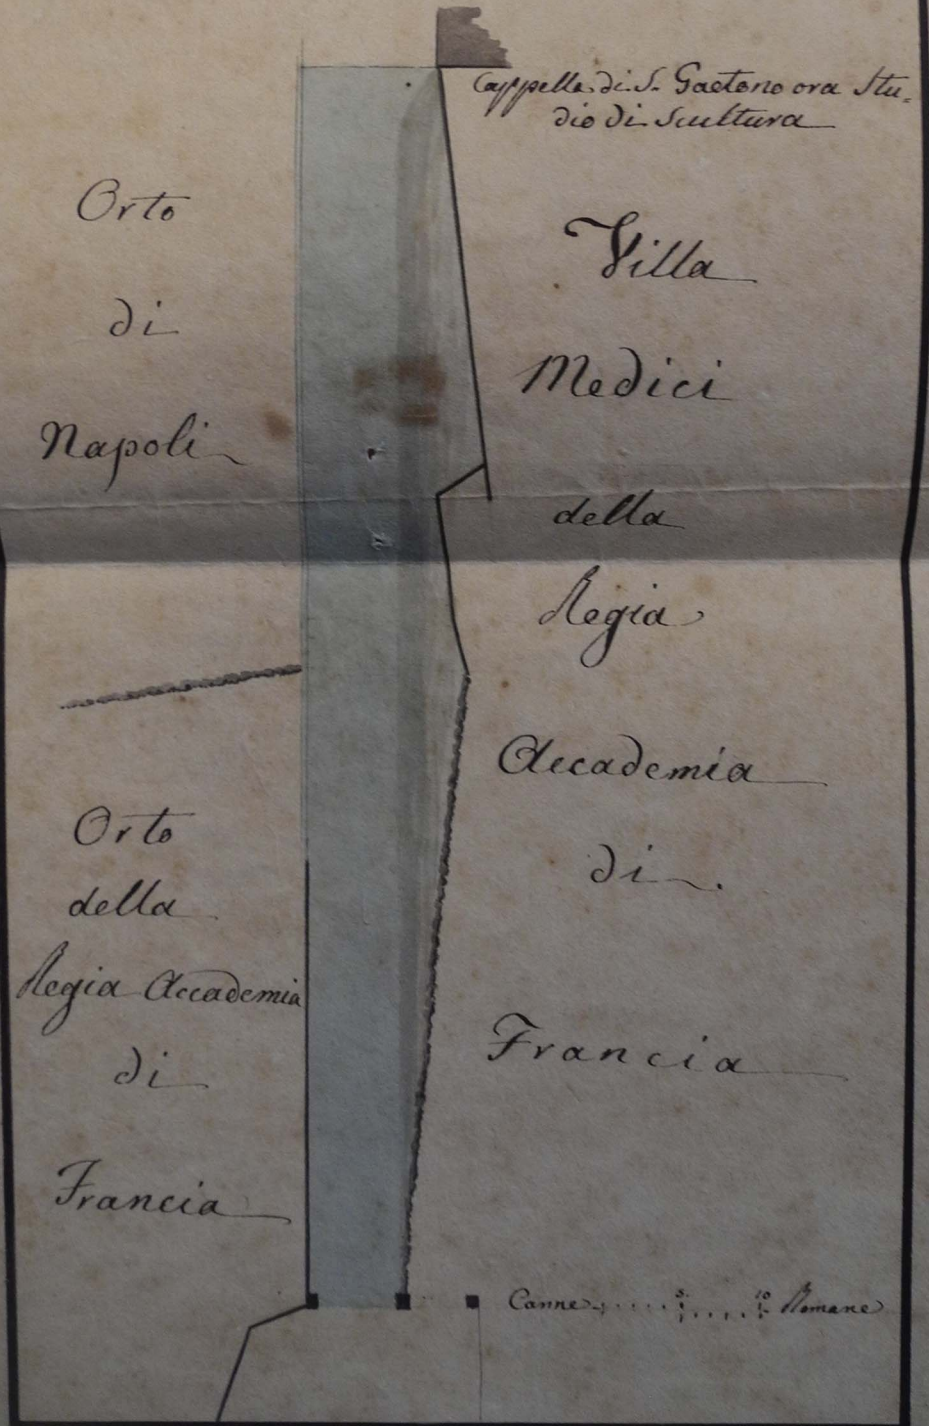 Cappella di S. Gaetano ora Stu=
dio di Scultura
Orto
di
Napoli
Villa
Medici
della
Regia
Accademia
di
Francia
Orto
della
Regia Accademia
di
Francia
Canne 5 10 Romane